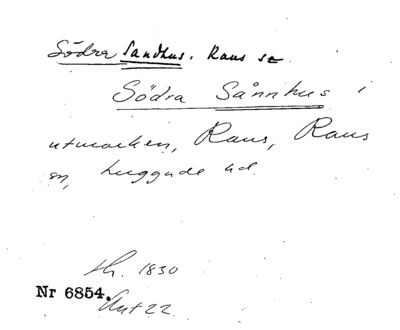 Södra Sandhus. Raus sn.
Södra Sånnhus i
utmarken, Raus, Raus
sn, huggade ved.
1830
Nr 6854.
22